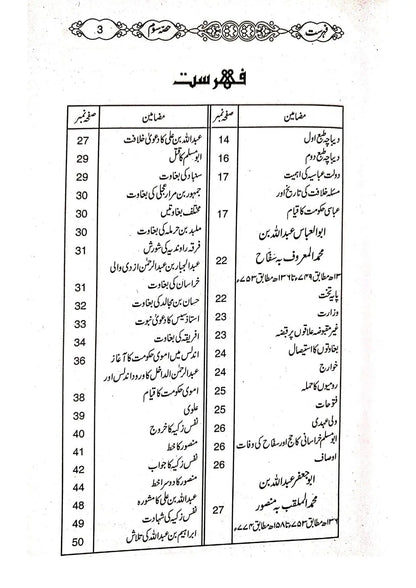 فہرست
3
حصہ سوم
فہرست
مضامین صفحہ نمبر
دیباچہ طبع اول 14
دیباچہ طبع دوم 16
دولت عباسیہ کی اہمیت 17
مسئلہ خلافت کی تاریخ اور
عباسی حکومت کا قیام 17
ابوالعباس عبداللہ بن
محمد المعروف بہ سفاح 22
۱۳۲ھ مطابق ۷۴۹ء تا ۱۳۶ھ مطابق ۷۵۳ء
پایہ تخت 22
وزارت 23
غیر مقبوضہ علاقوں پر قبضہ 23
بغاوتوں کا استیصال 23
خوارج 24
رومیوں کا حملہ 24
فتوحات 25
ولی عہدی 26
ابو مسلم خراسانی کا حج اور سفاح کی وفات 26
اوصاف 26
ابو جعفر عبداللہ بن
محمد الملقب بہ منصور 27
۱۳۶ھ مطابق ۷۵۳ء تا ۱۵۸ھ مطابق ۷۷۴ء
مضامین صفحہ نمبر
عبداللہ بن علی کا دعویٰ خلافت 27
ابو مسلم کا قتل 29
سنباد کی بغاوت 29
جمہور بن مرار عجلی کی بغاوت 30
مختلف بغاوتیں 30
ملبد بن حرملہ کی بغاوت 30
فرقہ راوندیہ کی شورش 31
عبدالجبار بن عبدالرحمٰن ازدی والی
خراسان کی بغاوت 31
حسان بن مجالد کی بغاوت 32
استاذ سیس کا دعویٰ نبوت 33
افریقہ کی بغاوت 34
اندلس میں اموی حکومت کا آغاز 36
عبدالرحمٰن الداخل کا ورود اندلس اور
اموی حکومت کا قیام 38
علوی 39
نفس زکیہ کا خروج 40
منصور کا خط 41
نفس زکیہ کا جواب 42
منصور کا دوسرا خط 44
عبداللہ بن علی کا مشورہ 48
نفس زکیہ کی شہادت 49
ابراہیم بن عبداللہ کی تلاش 50